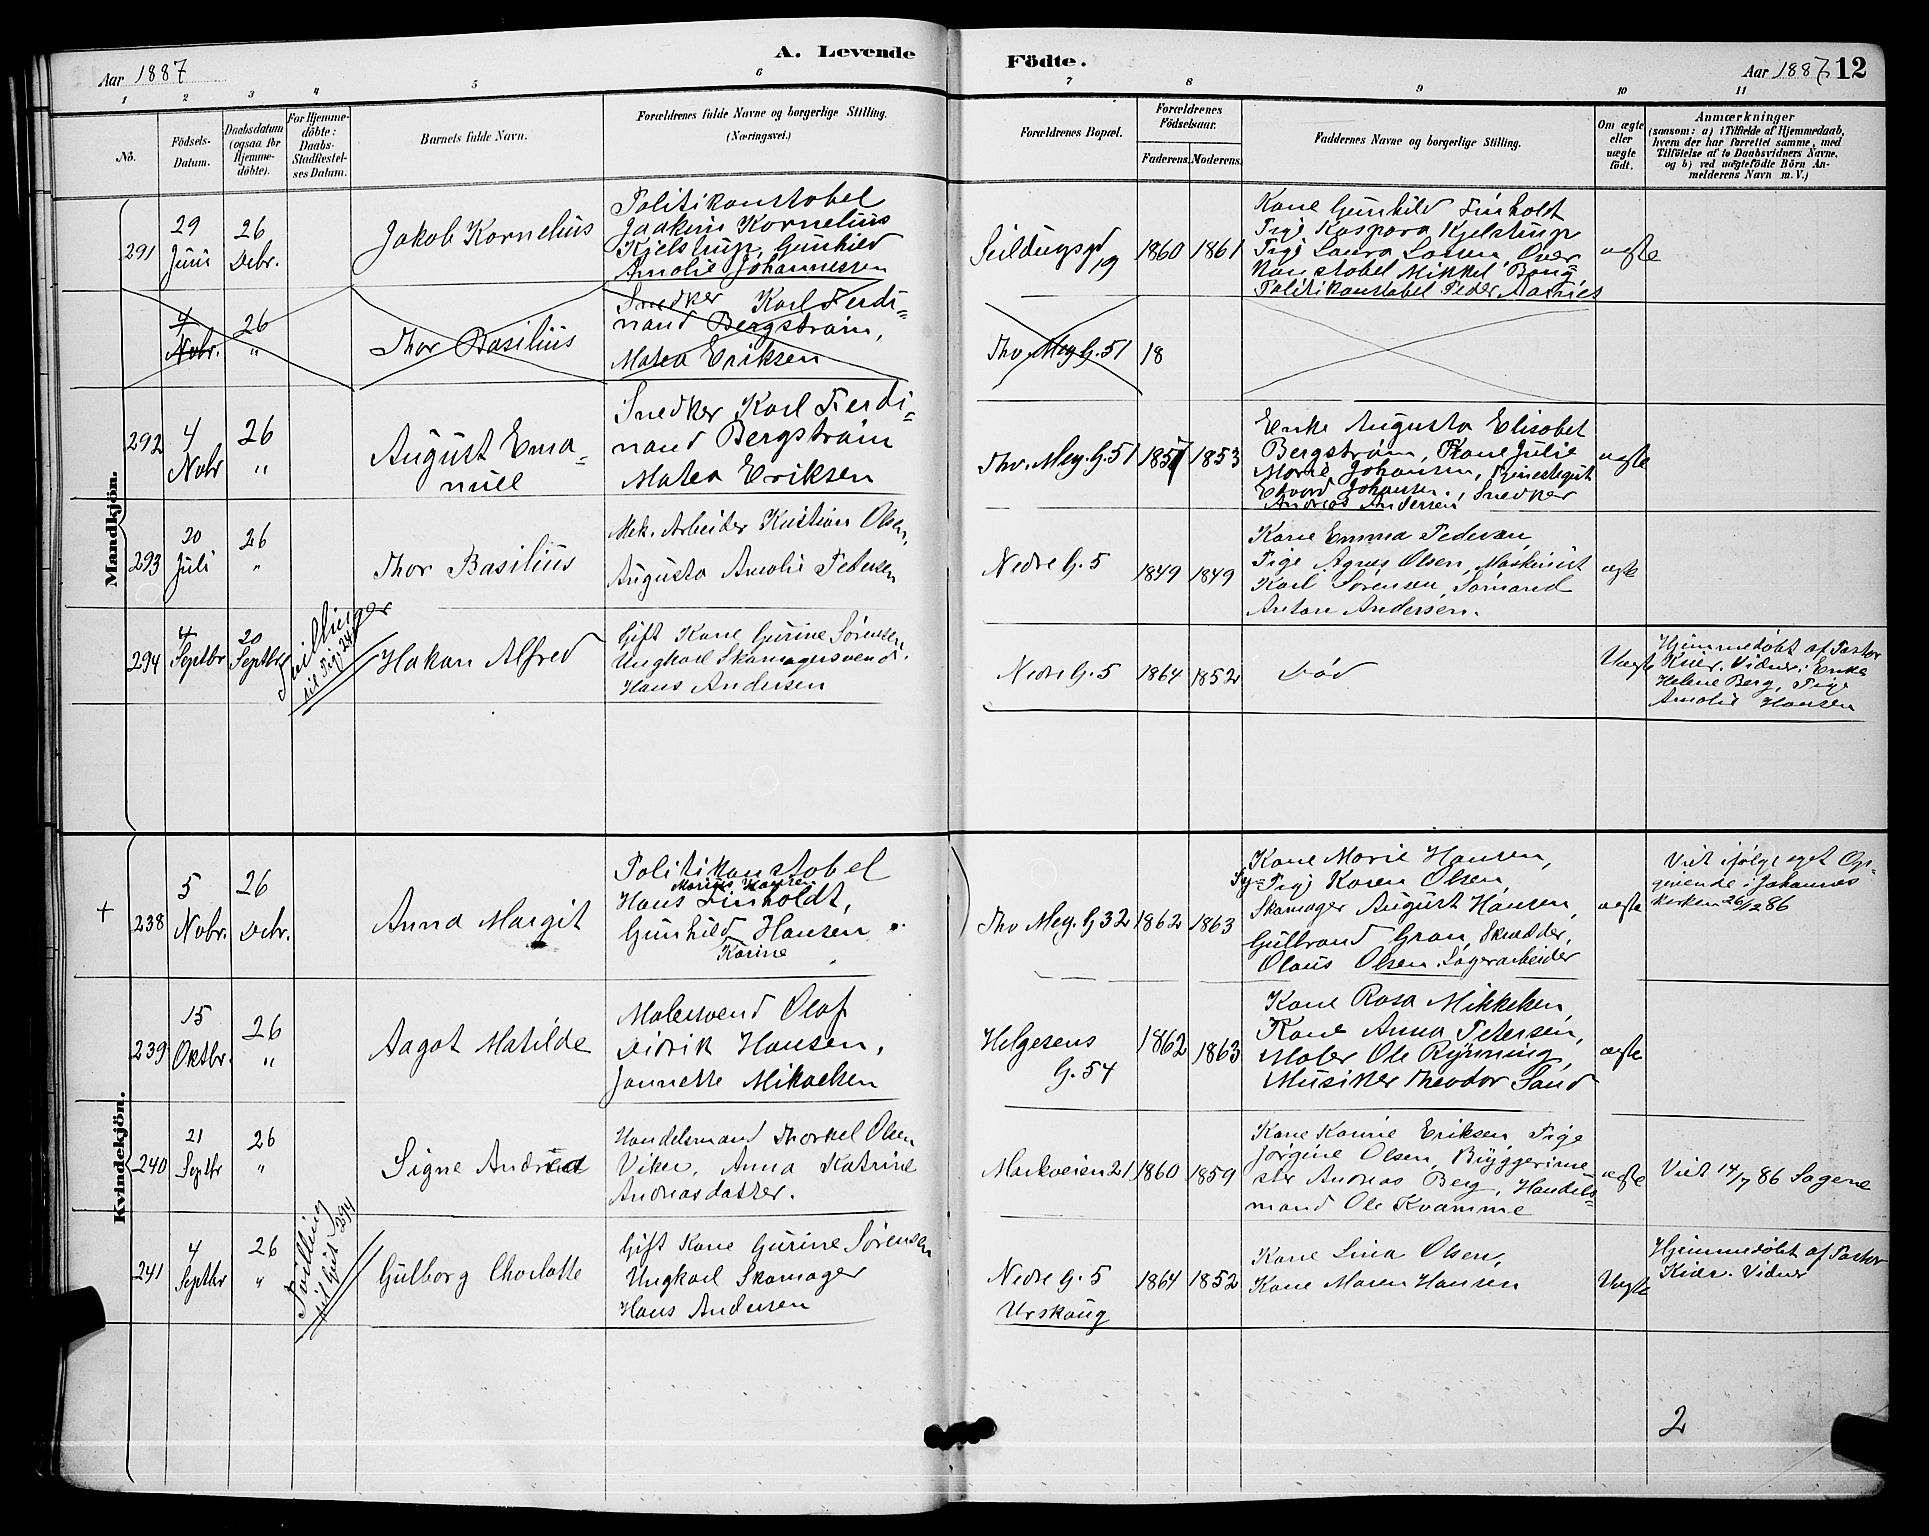 A. Levende
Födte.
Aar 1887
Aar 1887
12
1 2 3 4 5 6 7 8 9 10 11
No.
Födsels-
Datum.
Daabsdatum
(ogsaa for
Hjemme-
döbte).
For Hjemme-
döbte:
Daabs-
Stadfæstel-
ses Datum.
Barnets fulde Navn.
Forældrenes fulde Navne og borgerlige Stilling.
(Næringsvei.)
Forældrenes Bopæl.
Forældrenes
Födselsaar.
Faderens. Moderens.
Faddernes Navne og borgerlige Stilling.
Om ægte
eller
uægte
födt.
Anmærkninger
(saasom: a) i Tilfælde af Hjemmedaab,
hvem der har forrettet samme, med
Tilföielse af to Daabsvidners Navne,
og b) ved uægtefödte Börn An-
melderens Navn m. V.)
Mandkjön.
291
29
Juni
26
Debr.
Jakob Kornelius
Politikonstabel
Joakim Kornelius
Kjelstrup, Gunhild
Amalie Johannessen
Seildugsgd 19
1860
1861
Kone Gunhild Finholt
Pige Kaspara Kjelstrup
Pige Laura Larsen, Over
konstabel Mikkel Berg
Politikonstabel Peder Aasnes
ægte
4
Nobr.
26
"
Thor Basilius
Snedker Karl Ferdi=
nand Bergstrøm,
Matea Eriksen
Thv. Mey. G. 51
18
292
4
Nobr
26
"
August Ema=
nuel
Snedker Karl Ferdi=
nand Bergstrøm
Matea Eriksen
Thv. Mey. G. 51
1857
1853
Enke Augusta Elisabet
Bergstrøm, Kone Julie
Marie Johansen,
Edvard Johansen, Snedker
Andreas Andersen
ægte
293
20
Juli
26
"
Thor Basilius
Mek. Arbeider Kristian Olsen,
Augusta Amalie Pedersen
Nedre G. 5
1849
1849
Kone Emma Pedersen,
Pige Agnes Olsen, Maskinist
Karl Sørensen, Sømand
Anton Andersen.
ægte
294
4
Septbr
20
Septbr
Tvillinger
til Pig. 241
Hakan Alfred
Gift Kone Gurine Sørensen
Ungkarl Skomagersvend
Hans Andersen
Nedre G. 5
1864
1852
Død
Uægte
Hjemmedøbt af Pastor
Kiær. Vidner: Enke
Helene Berg, Pige
Amalie Hansen
Kvindekjön.
+
238
5
Nobr.
26
Debr.
Anna Margit
Politikonstabel
Marius Hansen
Hans Finholdt,
Gunhild Hansen
Karine
Thv Mey. G 32
1862
1863
Kone Marie Hansen,
Sy=Pige Karen Olsen,
Skomager August Hansen,
Gulbrand Gran, Skrædder,
Olaus Olsen, Lagerarbeider
ægte
Viet ifølge eget Op-
givende i Johannes
kirken 26/12 86
239
15
Oktbr.
26
"
Aagot Matilde
Malersvend Olaf
Didrik Hansen,
Jannette Mikaelsen
Helgesens
G. 54
1862
1863
Kone Rosa Mikkelsen,
Kone Anna Petersen,
Maler Ole Rynning,
Musiker Theodor Sand
ægte
240
21
Septbr
26
"
Signe Andrea
Handelsmand Thorkel Olsen
Viker, Anna Katrine
Andreasdatter.
Markveien 21
1860
1859
Kone Karine Eriksen, Pige
Jørgine Olsen, Bryggerime-
ster Andreas Berg, Handels-
mand Ole Kvamme
ægte
Viet 14/7 86 Sagene
241
4
Septbr
26
"
Tvilling
til Gut 294
Gulborg Charlotte
Gift Kone Gurine Sørensen
Ungkarl Skomager
Hans Andersen
Nedre G. 5
Urskoug
1864
1852
Kone Lina Olsen,
Kone Maren Hansen
Uægte
Hjemmedøbt af Pastor
Kiær. Vidner
2